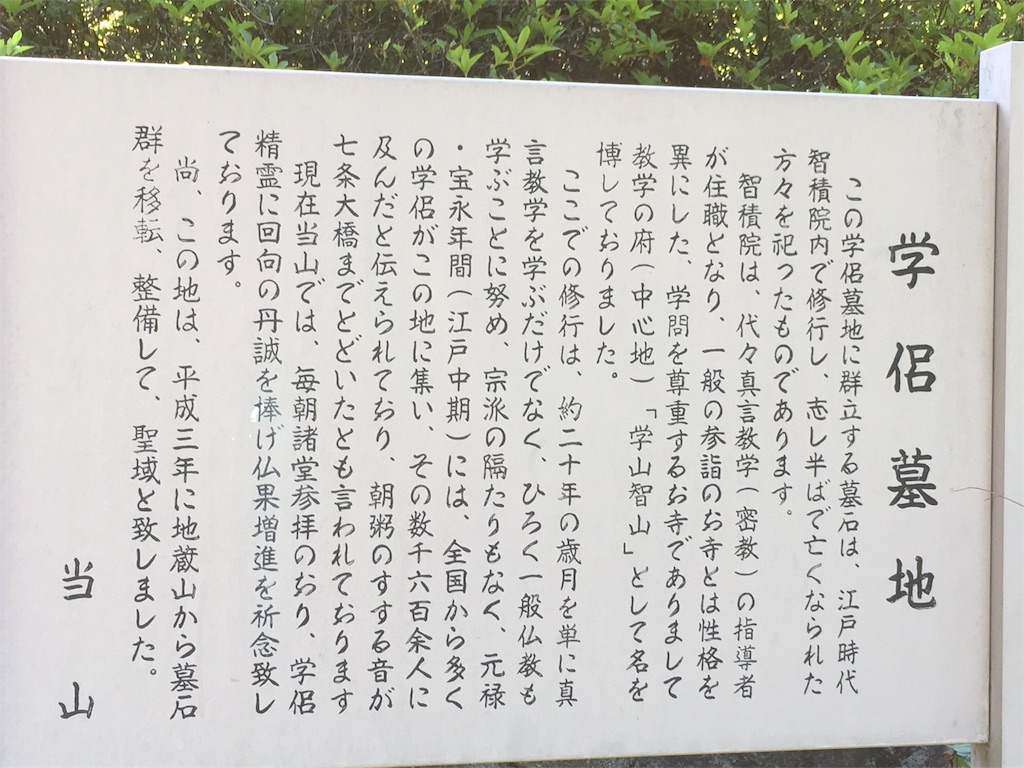 学侶墓地
この学侶墓地に群立する墓石は、江戸時代
智積院内で修行し、志し半ばで亡くなられた
方々を祀ったものであります。
智積院は、代々真言教学（密教）の指導者
が住職となり、一般の参詣のお寺とは性格を
異にした、学問を尊重するお寺でありまして
教学の府（中心地）「学山智山」として名を
博しておりました。
ここでの修行は、約二十年の歳月を単に真
言教学を学ぶだけでなく、ひろく一般仏教も
学ぶことに努め、宗派の隔たりもなく、元禄
・宝永年間（江戸中期）には、全国から多く
の学侶がこの地に集い、その数千六百余人に
及んだと伝えられており、朝粥のすする音が
七条大橋までとどいたとも言われております
現在当山では、毎朝諸堂参拝のおり、学侶
精霊に回向の丹誠を捧げ仏果増進を祈念致し
ております。
尚、この地は、平成三年に地蔵山から墓石
群を移転、整備して、聖域と致しました。
当山